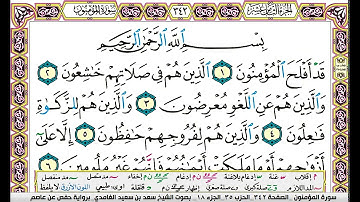 سورة المؤمنون
٣٤٢
الجزء الثامن عشر
بِسْمِ ٱللَّهِ ٱلرَّحْمَٰنِ ٱلرَّحِيمِ
قَدْ أَفْلَحَ ٱلْمُؤْمِنُونَ ١ ٱلَّذِينَ هُمْ فِى صَلَاتِهِمْ خَٰشِعُونَ ٢
وَٱلَّذِينَ هُمْ عَنِ ٱللَّغْوِ مُعْرِضُونَ ٣ وَٱلَّذِينَ هُمْ لِلزَّكَوٰةِ
فَٰعِلُونَ ٤ وَٱلَّذِينَ هُمْ لِفُرُوجِهِمْ حَٰفِظُونَ ٥ إِلَّا عَلَىٰٓ
أَزْوَٰجِهِمْ أَوْ مَا مَلَكَتْ أَيْمَٰنُهُمْ فَإِنَّهُمْ غَيْرُ مَلُومِينَ ٦
سورة المؤمنون الصفحة ٣٤٢ الحزب ٣٥ الجزء ١٨ بصوت الشيخ سعد بن سعيد الغامدي برواية حفص عن عاصم